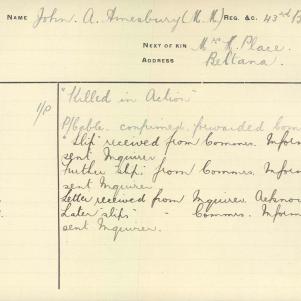 NAME John. A. Amesbury (M.M) REG. &C. 43rd/B
NEXT OF KIN Mrs H. Place.
ADDRESS Beltana.
1/P "Killed in Action"
P/Cable. confirmed. forwarded Com
"Slip" received from Commrs. Inform
sent Inquirer
Further slip from Commrs. Inform
sent Inquirer
Letter received from Inquirer. Acknow
Later "slips" " Commrs. Inform
sent Inquirer.